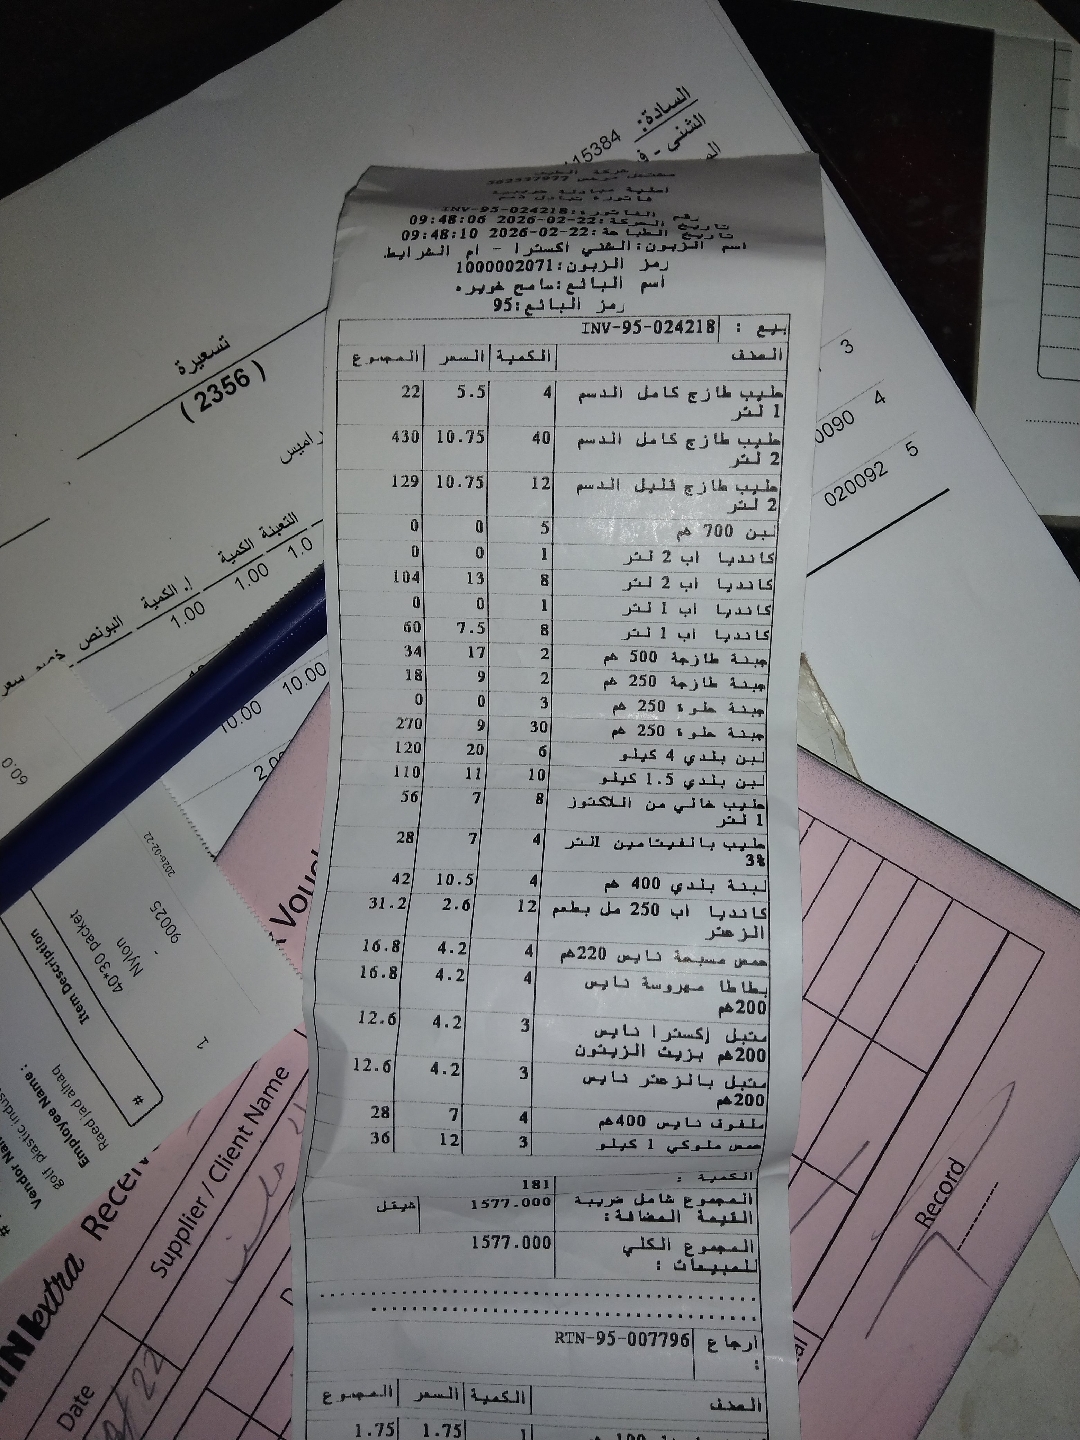 السادة:
الشني - ف
15384
تسعيرة
( 2356 )
راميس
التعبئة الكمية
إ. الكمية
البونص
سعر
1.0
1.00
1.00
10.00
10.00
60.0
3
0090 4
020092 5
شركة الطيف
562527977
فاتورة
رقم الفاتورة:INV-95-024218
تاريخ الحركة:22-02-2026 09:48:06
تاريخ الطباعة:22-02-2026 09:48:10
اسم الزبون:الشني اكسترا - ام الشرايط
رمز الزبون:1000002071
اسم البائع:سامح خويره
رمز البائع:95
بيع : INV-95-024218
الصنف الكمية السعر المجموع
حليب طازج كامل الدسم 4 5.5 22
1 لتر
حليب طازج كامل الدسم 40 10.75 430
2 لتر
حليب طازج قليل الدسم 12 10.75 129
2 لتر
لبن 700 غم 5 0 0
كانديا اب 2 لتر 1 0 0
كانديا اب 2 لتر 8 13 104
كانديا اب 1 لتر 1 0 0
كانديا اب 1 لتر 8 7.5 60
جبنة طازجة 500 غم 2 17 34
جبنة طازجة 250 غم 2 9 18
جبنة حلوة 250 غم 3 0 0
جبنة حلوة 250 غم 30 9 270
لبن بلدي 4 كيلو 6 20 120
لبن بلدي 1.5 كيلو 10 11 110
حليب خالي من اللاكتوز 8 7 56
1 لتر
حليب بالفيتامين 1لتر 4 7 28
3%
لبنة بلدي 400 غم 4 10.5 42
كانديا اب 250 مل بطعم 12 2.6 31.2
الزعتر
حمص مسبحة نايس 220غم 4 4.2 16.8
بطاطا مهروسة نايس 4 4.2 16.8
200غم
متبل إكسترا نايس 3 4.2 12.6
200غم بزيت الزيتون
متبل بالزعتر نايس 3 4.2 12.6
200غم
ملفوف نايس 400غم 4 7 28
حمص ملوكي 1 كيلو 3 12 36
الكمية : 181
المجموع شامل ضريبة 1577.000 شيقل
القيمة المضافة:
المجموع الكلي 1577.000
للمبيعات :
ارجاع RTN-95-007796
:
الصنف الكمية السعر المجموع
100 غم 1 1.75 1.75
2026-02-22
90025
-
Nylon
40*30 packet
Item Description
#
1
Raed jad alhaq
Employee Name :
golf plastic indus
Vendor Nam
extra
Receiv
Vouch
Supplier / Client Name
Date
Record